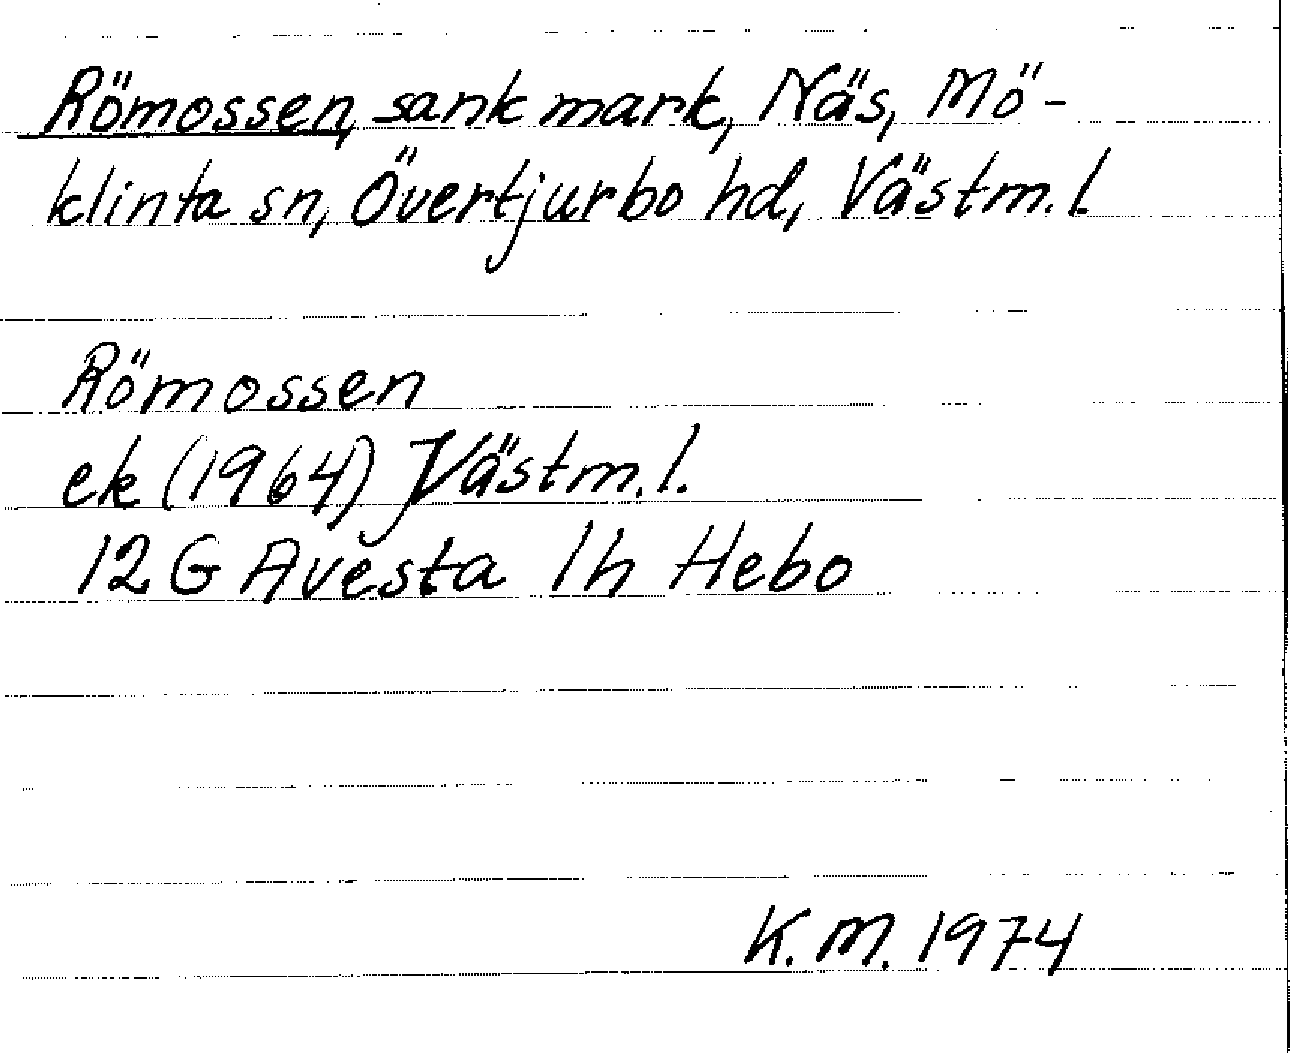 Römossen, sank mark, Näs, Mö-
klinta sn, Övertjurbo hd, Västm. l.
Römossen
ek (1964) Västm. l.
12 G Avesta 1h Hebo
K. M. 1974